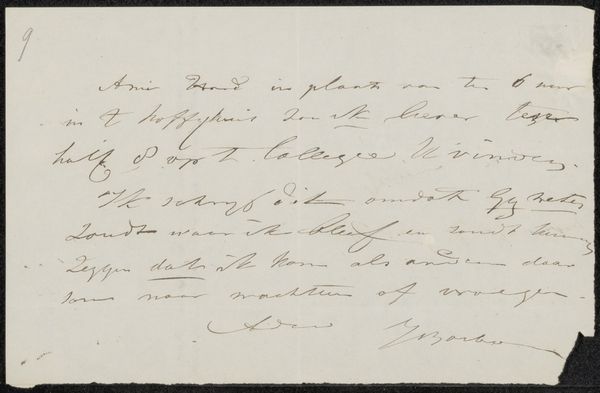 9
Amice in plaats van ten 6 uur
in 't koffyhuis zou ik liever ten
half 8 op 't Collegie U vinden.
Ik schryf dit omdat Gy weten
zoudt waar ik bleef en zoudt kunnen
zeggen dat ik kom als andren daar
soms naar wachten of vroegen.
Adieu